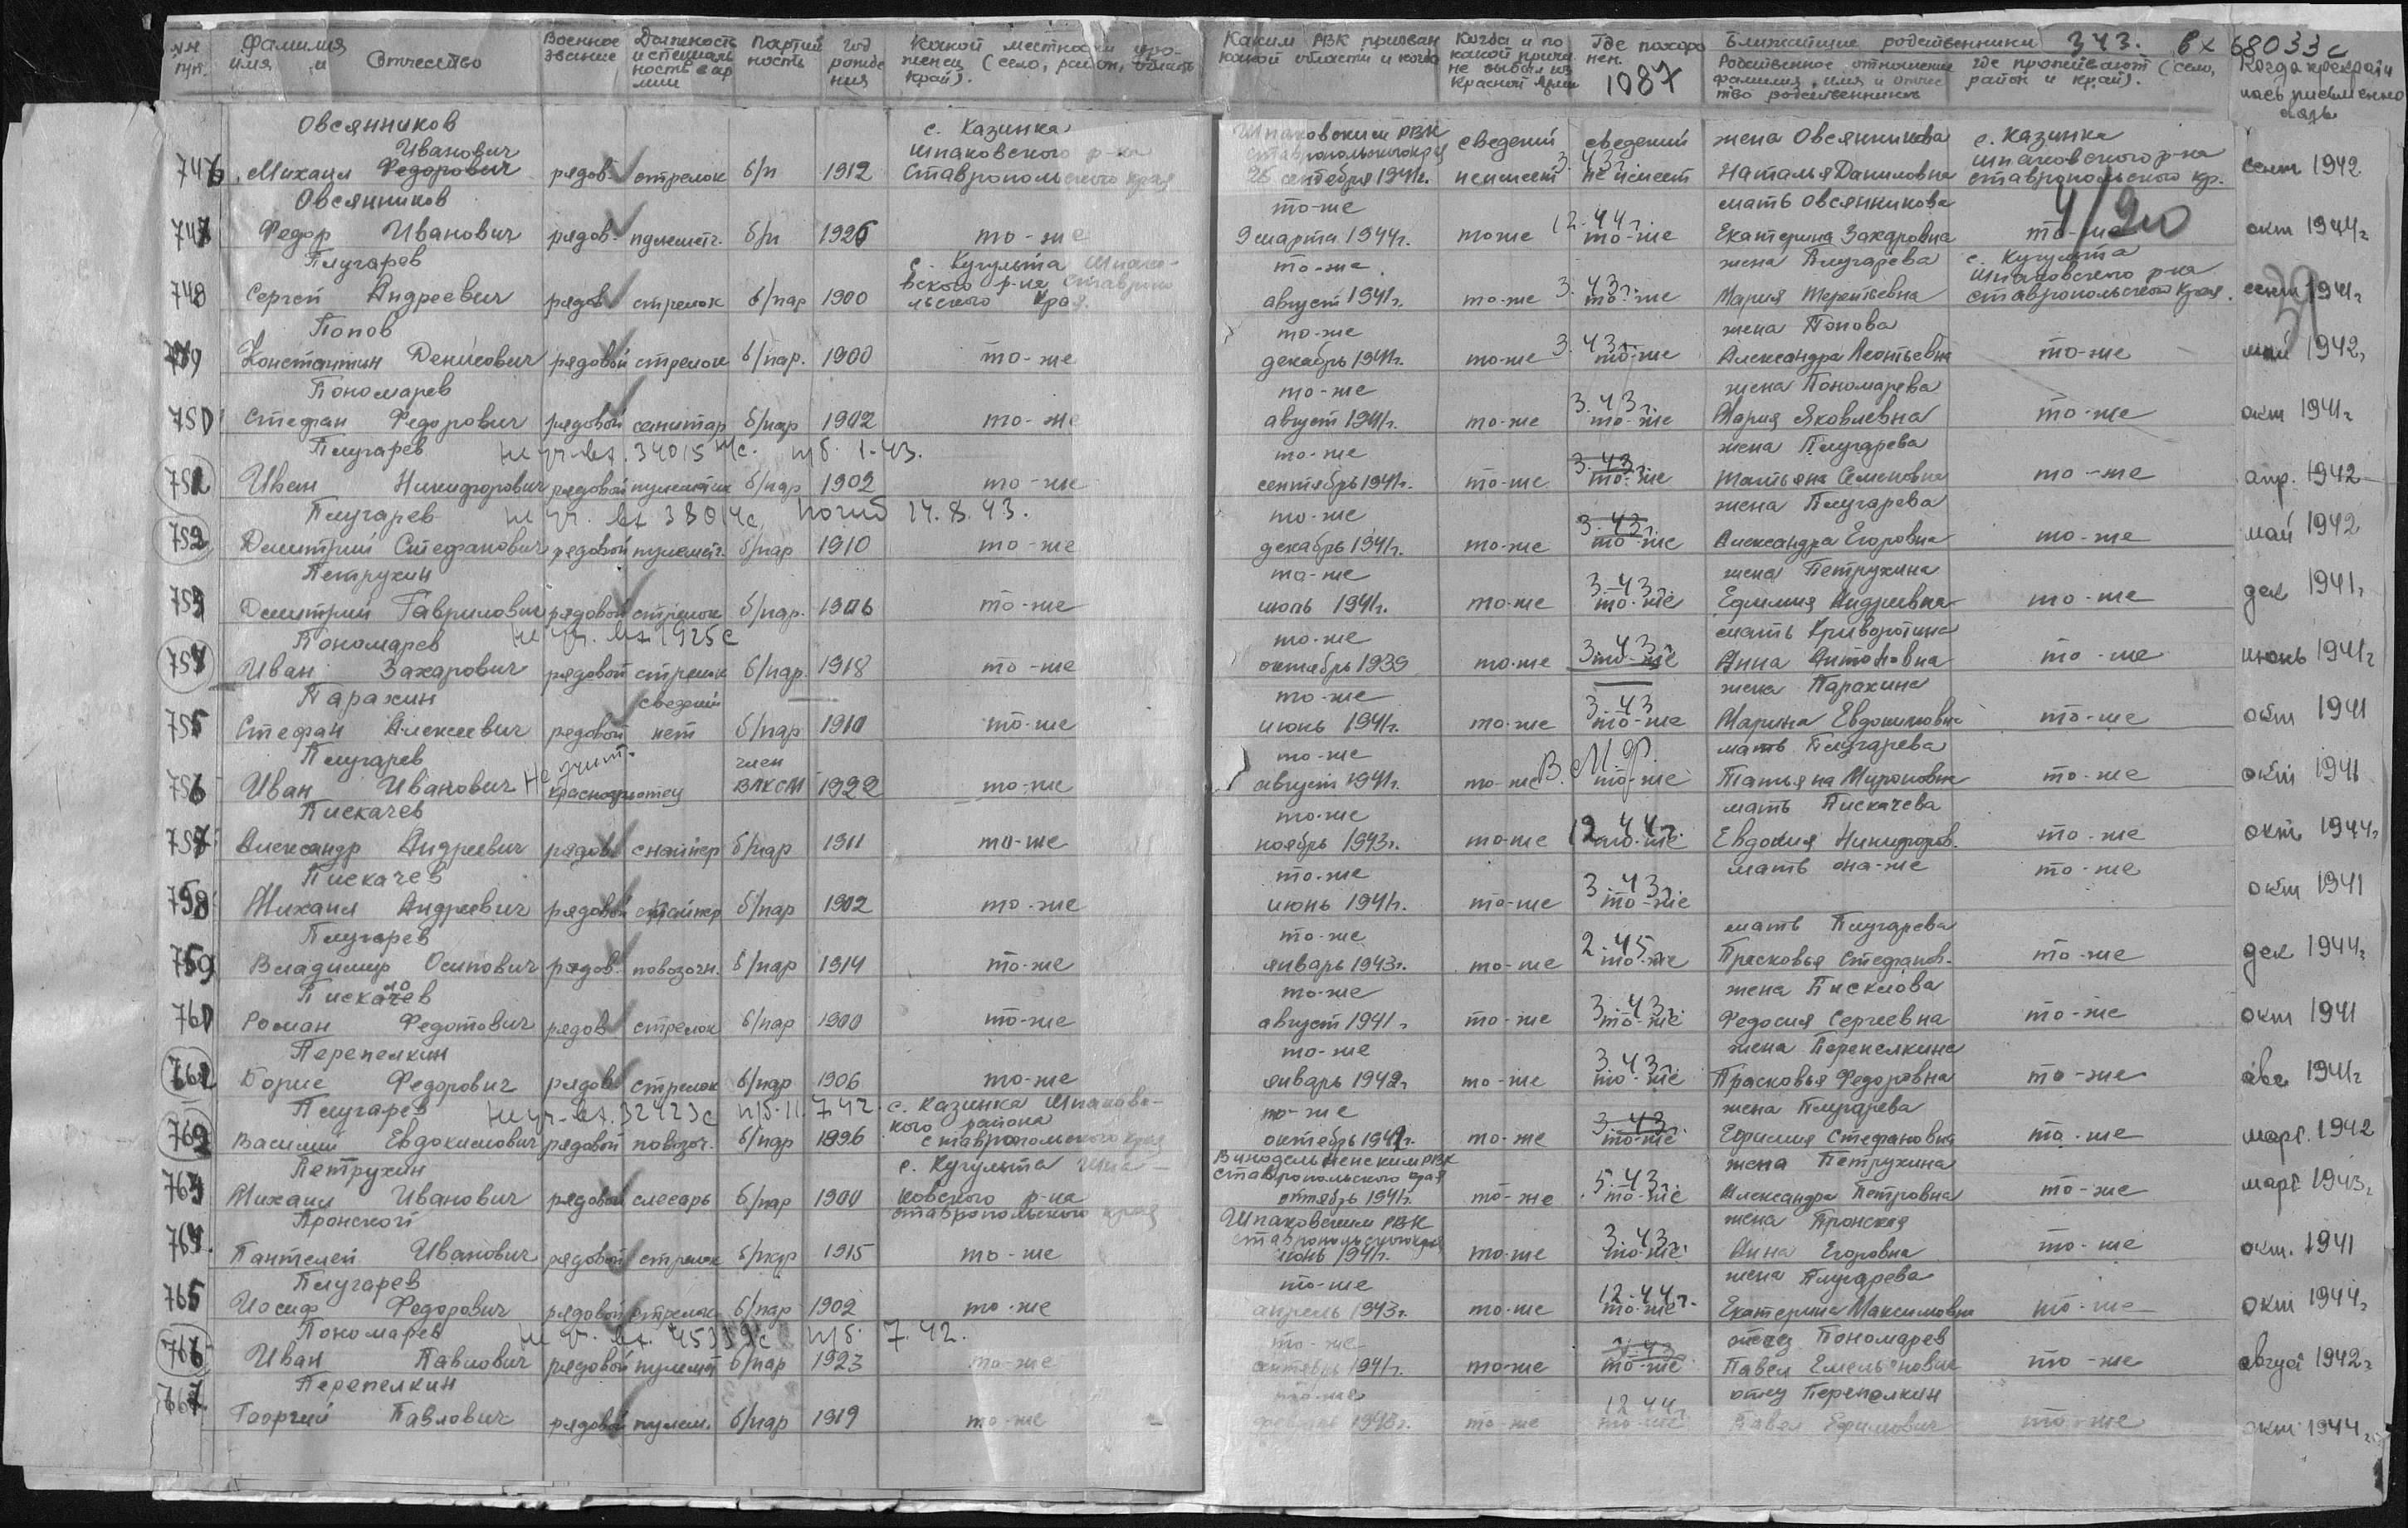 №№ п/п. Фамилия имя и Отчество Военное звание Должность и специальность в армии Партийность год рождения Какой местности уроженец (село, район, область край). Каким РВК призван какой области и когда Когда и по какой причине выбыл из Красной Арм Где похоронен. 1087 Ближайшие родственники 343. вх 68033с
Родственное отношение фамилия, имя и отчество родственников где проживают (село, район и край). Когда прекратилась письменно связь
Овсянников с. Казинка Шпаковским РВК жена Овсянникова с. Казинка
Иванович Шпаковского р-на Ставропольского края сведений сведений Шпаковского р-на
746 Михаил Федорович рядов. стрелок б/п 1912 Ставропольского края 26 сентября 1941г. не имеет 3.43г. не имеет Наталья Даниловна Ставропольского кр. сент 1942
Овсянников то-же мать Овсянникова 4/20
747 Федор Иванович рядов. пулеметч. б/п 1926 то-же 9 марта 1944г. то-же 12.44г. то-же Екатерина Захаровна то-же окт 1944г
Плугарев с. Кугульта Шпако- то-же жена Плугарева с. Кугульта
вского р-на Ставропо Шпаковского р-на
748 Сергей Андреевич рядов стрелок б/пар 1900 льского края. август 1941г. то-же 3.43г. то-же Мария Терентьевна Ставропольского края. сент 1941г
Попов то-же жена Попова
749 Константин Денисович рядовой стрелок б/пар. 1900 то-же декабрь 1941г. то-же 3.43г. то-же Александра Леонтьевна то-же май 1942г
Пономарев то-же жена Пономарева
750 Стефан Федорович рядовой санитар б/пар 1902 то-же август 1941г. то-же 3.43г. то-же Мария Яковлевна то-же окт 1941г
Плугарев Не уч. вх. 34015с. п/б. 1.43. то-же жена Плугарева
751 Иван Никифорович рядовой пулеметчик б/пар 1902 то-же сентябрь 1941г. то-же 3.43г. то-же Татьяна Семеновна то-же апр. 1942
Плугарев Не уч. вх 38014с, погиб 14.8.43. то-же жена Плугарева
752 Дмитрий Стефанович рядовой пулемет. б/пар 1910 то-же декабрь 1941г. то-же 3.43г. то-же Александра Егоровна то-же май 1942
Петрухин то-же жена Петрухина
753 Дмитрий Гаврилович рядовой стрелок б/пар. 1906 то-же июль 1941г. то-же 3.43г. то-же Ефимия Андреевна то-же дек 1941г
Пономарев Не уч. вх 1925с то-же мать Криворотина
754 Иван Захарович рядовой стрелок б/пар. 1918 то-же октябрь 1939 то-же 3.43г. то-же Анна Антоновна то-же июнь 1941г
Парахин сведений то-же жена Парахина
755 Стефан Алексеевич рядовой нет б/пар 1910 то-же июнь 1941г. то-же 3.43 то-же Марина Евдокимовна то-же окт 1941
Плугарев Не учит. член то-же мать Плугарева
756 Иван Иванович краснофлотец ВЛКСМ 1922 то-же август 1941г. то-же В.М.Ф. то-же Татьяна Мироновна то-же окт 1941
Пискачев то-же мать Пискачева
757 Александр Андреевич рядов снайпер б/пар 1911 то-же ноябрь 1943г. то-же 12.44г. то-же Евдокия Никифоров. то-же окт 1944г
Пискачев то-же мать она-же то-же
758 Михаил Андреевич рядовой снайпер б/пар 1902 то-же июнь 1941г. то-же 3.43г. то-же окт 1941
Плугарев то-же мать Плугарева
759 Владимир Осипович рядов. повозочн. б/пар 1914 то-же январь 1943г. то-же 2.45г. то-же Прасковья Стефанов. то-же дек 1944г
Пискачев то-же жена Писклова
760 Роман Федотович рядов стрелок б/пар 1900 то-же август 1941г то-же 3.43г. то-же Федосия Сергеевна то-же окт 1941
Перепелкин то-же жена Перепелкина
761 Борис Федорович рядов. стрелок б/пар 1906 то-же январь 1942г то-же 3.43г. то-же Прасковья Федоровна то-же авг 1941г
Плугарев Не уч. вх. 32423с п/б. 11.7.42. с. Казинка Шпаковс- то-же жена Плугарева
кого района
762 Василий Евдокимович рядовой повозоч. б/пар 1896 Ставропольского края октябрь 1941г. то-же 3.43. то-же Ефимия Стефановна то-же март. 1942
Петрухин с. Кугульта Шпа- Винодельненским РВК жена Петрухина
Ставропольского края
763 Михаил Иванович рядовой слесарь б/пар 1900 ковского р-на октябрь 1941г. то-же 5.43г. то-же Александра Петровна то-же март 1943г
Пронской Ставропольского края Шпаковским РВК жена Пронская
Ставропольского края
764. Пантелей Иванович рядовой стрелок б/пар 1915 то-же июнь 1941г. то-же 3.43г. то-же Анна Егоровна то-же окт. 1941
Плугарев то-же жена Плугарева
765 Иосиф Федорович рядовой стрелок б/пар 1902 то-же апрель 1943г. то-же 12.44г. то-же Екатерина Максимовна то-же окт 1944г
Пономарев Не уч. вх. 45339с п/б. 7.42. то-же отец Пономарев
766 Иван Павлович рядовой пулемет б/пар 1923 то-же сентябрь 1941г. то-же 3.43 то-же Павел Емельянович то-же август 1942г
Перепелкин то-же отец Перепелкин
767 Георгий Павлович рядовой пулем. б/пар 1919 то-же 1943г. то-же 12.44г то-же Павел Ефимович то-же окт 1944г